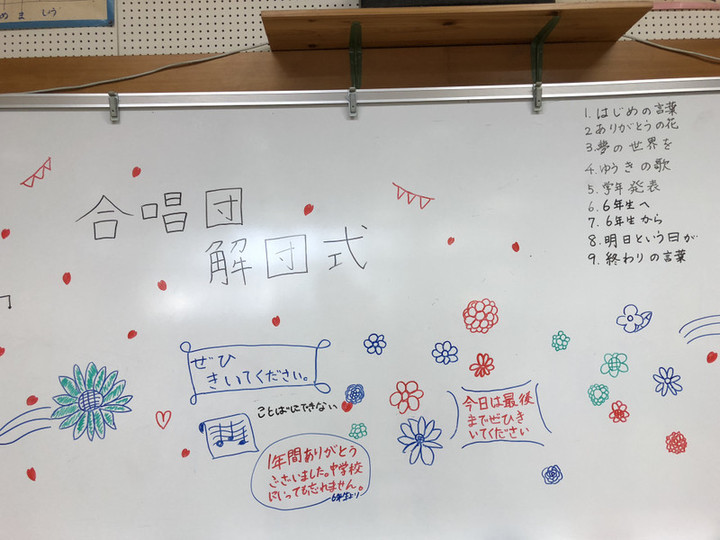 めましょう
合唱団
解団式
1. はじめの言葉
2 ありがとうの花
3. 夢の世界を
4. ゆうきの歌
5. 学年発表
6. 6年生へ
7. 6年生から
8. 明日という日が
9. 終わりの言葉
ぜひ
きいてください。
ことばにできない
1年間ありがとう
ございました。中学校
にいっても忘れません。
6年生より
今日は最後
までぜひき
いてください